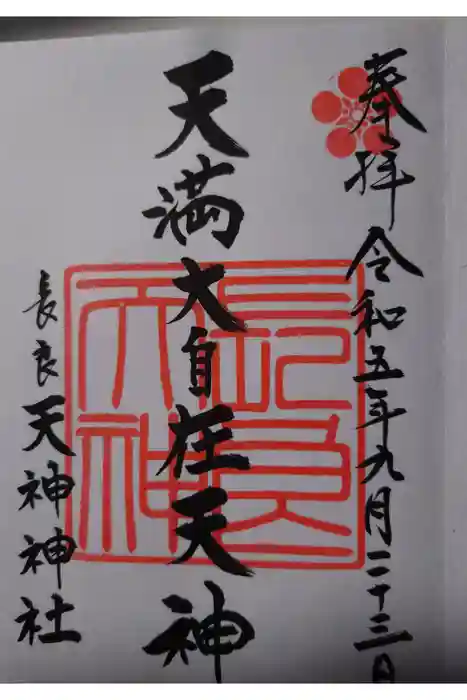 奉拝 令和五年九月二十三日
天満大自在天神
長良天神神社
長良天神